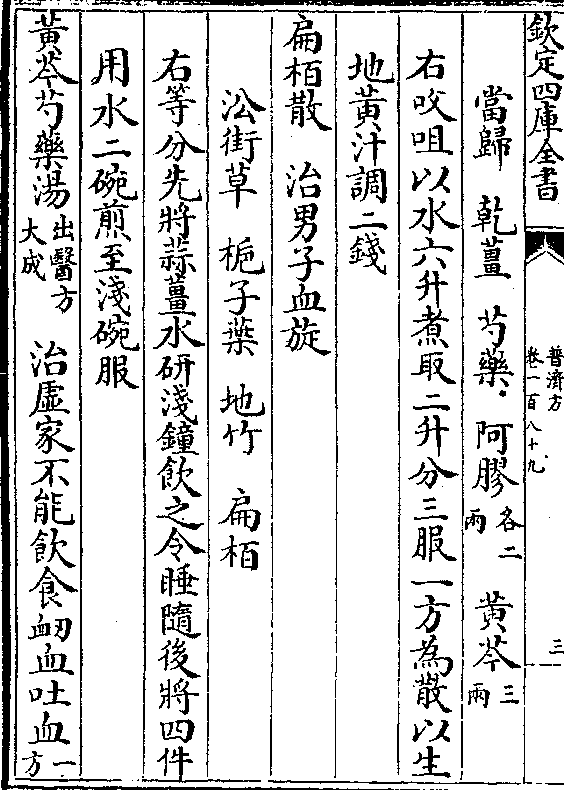 欽定四庫全書
普濟方
卷一百八十九
三
當歸 乾薑 芍藥 阿膠各二兩 黃芩三兩
右㕮咀以水六升煮取二升分三服一方為散以生
地黃汁調二錢
扁栢散 治男子血旋
㳂街草 梔子葉 地竹 扁栢
右等分先將蒜薑水研淺鐘飲之令睡隨後將四件
用水二碗煎至淺碗服
黃芩芍藥湯出醫方大成 治虛家不能飲食衂血吐血一方